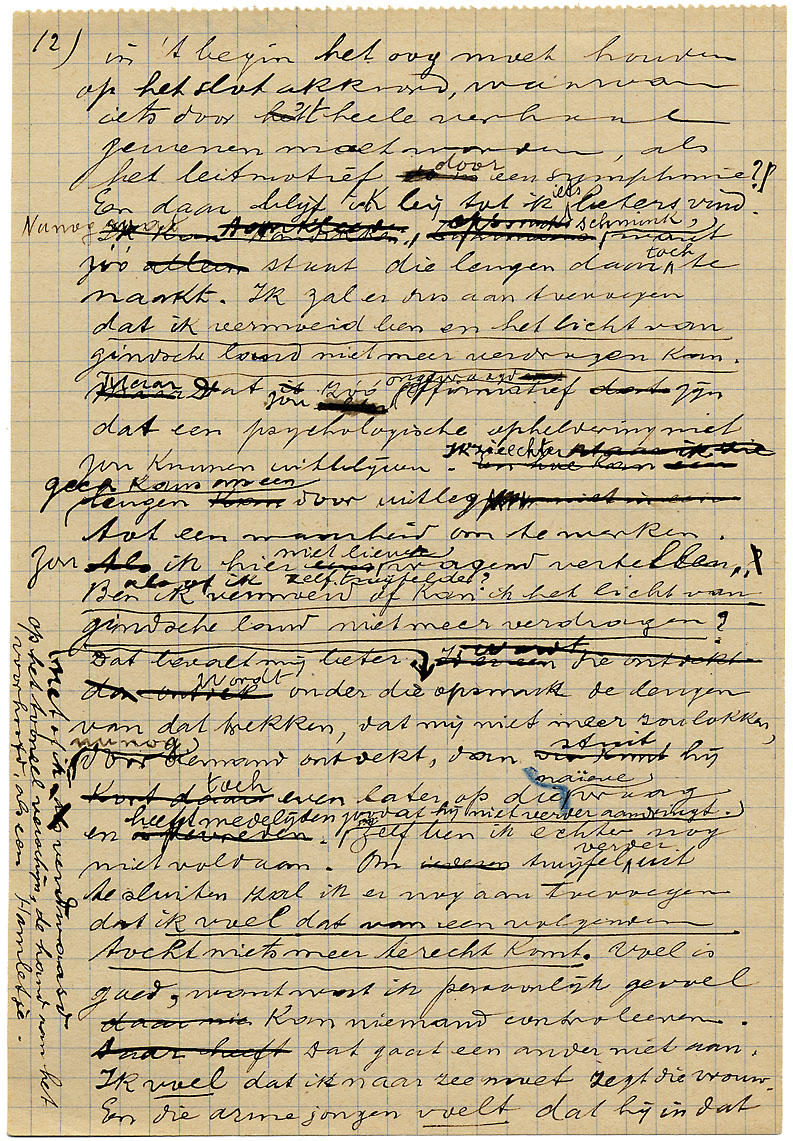 12)
in 't begin het oog moet houden
op het slotakkoord, waarvan
iets door het 't heele verhaal
gemengd moet worden, als
het leitmotief door een symphonie?!
En daar blijf ik bij tot ik iets beters vind.
Nu nog schmink, want
zóó alleen staan die leugen daar toch te
naakt. Ik zal er dus aan toevoegen
dat ik vermoeid ben en het licht van
gindsche land niet meer verdragen kan.
Maar Dat zou zóó ongevraagd affirmatief zijn
dat een psychologische opheldering niet
zou kunnen uitblijven. Ik zie echter
geen kans om een
leugen door uitleg
tot een waarheid om te werken.
Zou Als ik hier niet liever vragend vertellen,
alsof ik zelf twijfelde?
Ben ik vermoeid of kan ik het licht van
gindsche land niet meer verdragen?
Dat bevalt mij beter, want
wordt onder die opsmuk de leugen
van dat trekken, dat mij niet meer zou lokken,
nu nog
door iemand ontdekt, dan stuit hij
toch even later op die naïeve vraag
en heeft medelijden zoodat hij niet verder aandringt.
Zelf ben ik echter nog
niet voldaan. Om verder twijfel uit
te sluiten zal ik er nog aan toevoegen
dat ik voel dat van een volgenden
tocht niets meer terecht komt. Voel is
goed, want wat ik persoonlijk gevoel
daar kan niemand controleeren.
Daar heeft Dat gaat een ander niet aan.
Ik voel dat ik naar zee moet zegt die vrouw.
En die arme jongen voelt dat hij in dat
net of ik verdwaasd
op het tooneel verschijn, de hand van het
voorhoofd, als een Hamletje.